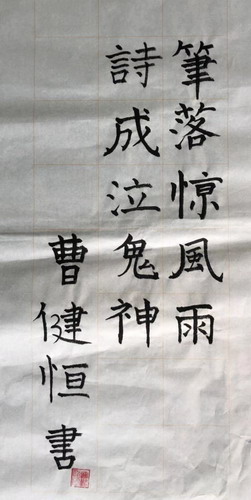 筆落惊風雨
詩成泣鬼神
曹健恒書